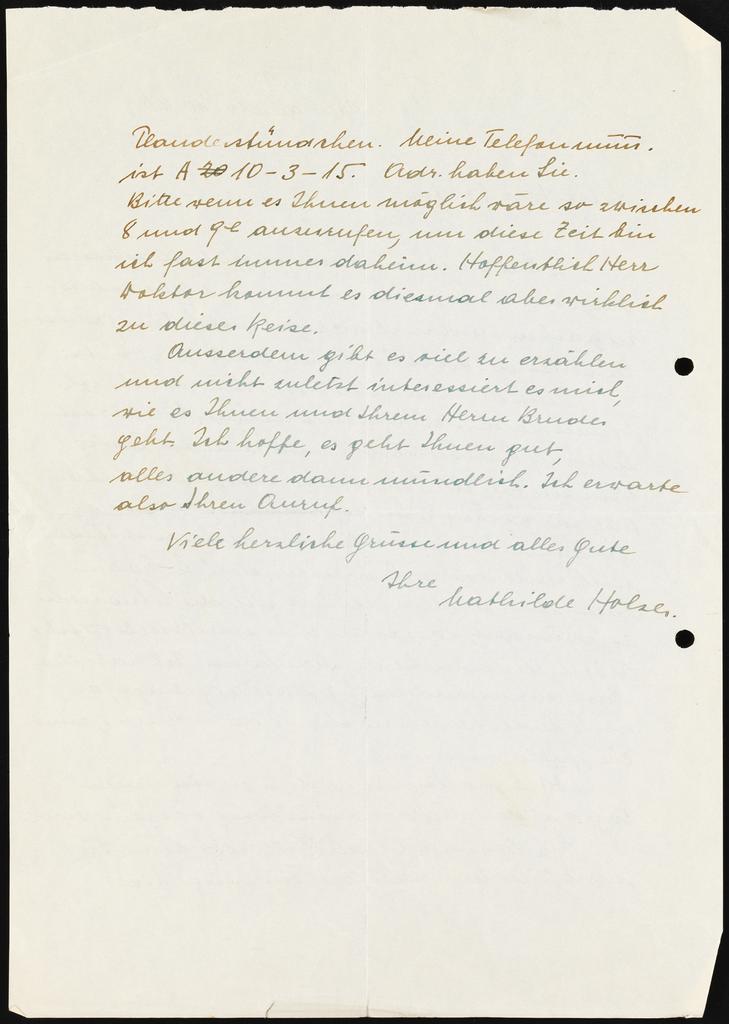 Plauderstündchen. Meine Telefonnum̅.
ist A 20 10-3-15. Adr. haben Sie.
Bitte wenn es Ihnen möglich wäre so zwischen
8 und 9h anzurufen, um diese Zeit bin
ich fast immer daheim. Hoffentlich Herr
Doktor kommt es diesmal aber wirklich
zu dieser Reise.
Ausserdem gibt es viel zu erzählen
und nicht zuletzt interessiert es mich,
wie es Ihnen und Ihrem Herrn Bruder
geht. Ich hoffe, es geht Ihnen gut,
alles andere dann mündlich. Ich erwarte
also Ihren Anruf.
Viele herzliche Grüsse und alles Gute
Ihre
Mathilde Holzer.